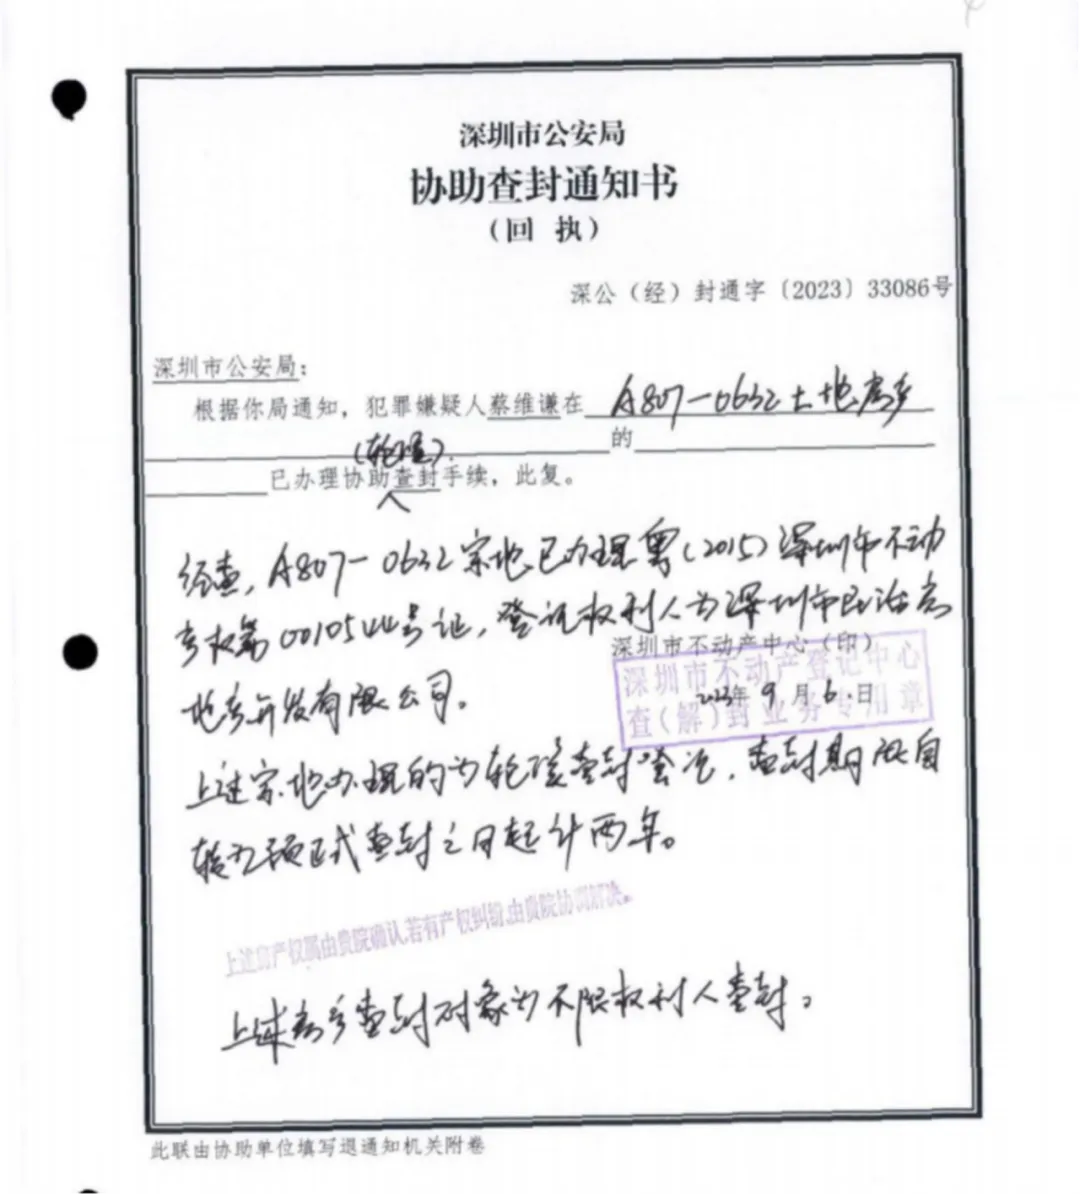 深圳市公安局
协助查封通知书
（回 执）
深公（经）封通字〔2023〕33086号
深圳市公安局：
根据你局通知，犯罪嫌疑人蔡维谦在 A807-0632土地房产
的
（轮候）
已办理协助查封手续，此复。
经查，A807-0632宗地已办理粤（2015）深圳市不动
产权第0010544号证，登记权利人为深圳市民治房
深圳市不动产中心（印）
地产开发有限公司。
深圳市不动产登记中心
2023年9月6日
查（解）封业务专用章
上述宗地办理的为轮候查封，查封期限自
转为正式查封之日起计两年。
上述房产权属由贵院确认，若有产权纠纷，由贵院协调解决。
上述房产查封对象为不限权利人查封。
此联由协助单位填写退通知机关附卷